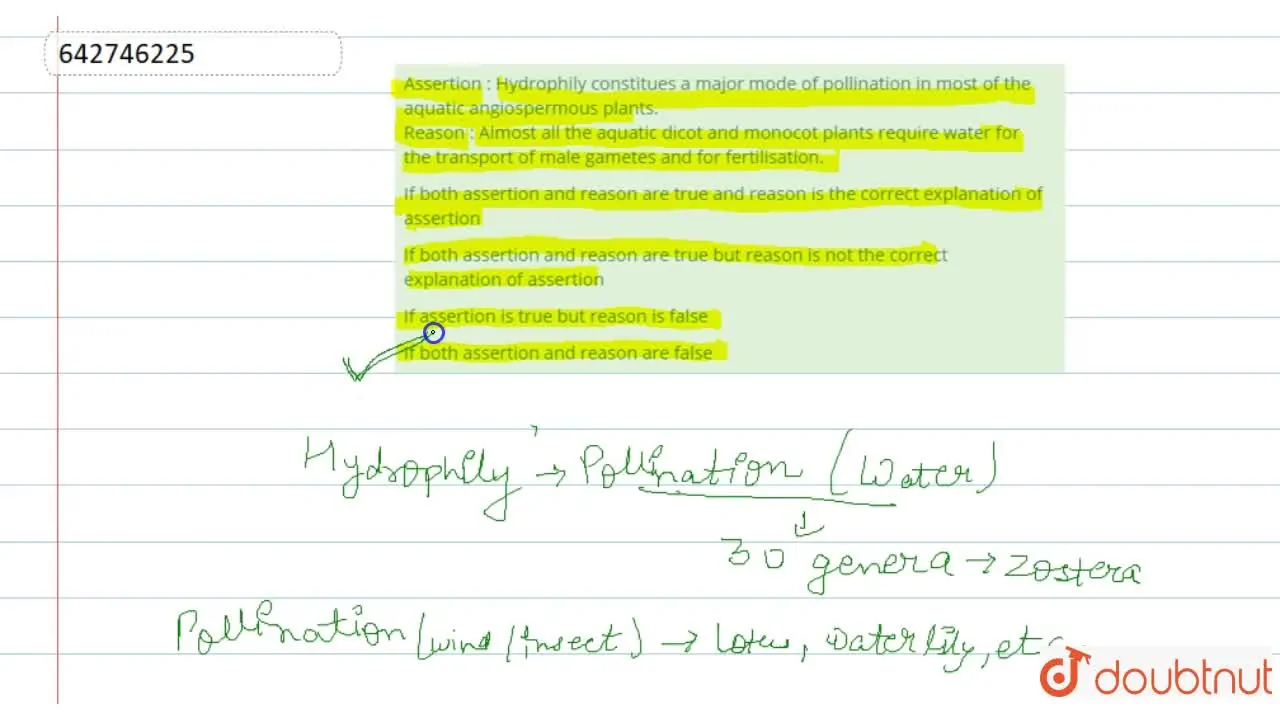 642746225
Assertion : Hydrophily constitues a major mode of pollination in most of the
aquatic angiospermous plants.
Reason : Almost all the aquatic dicot and monocot plants require water for
the transport of male gametes and for fertilisation.
If both assertion and reason are true and reason is the correct explanation of
assertion
If both assertion and reason are true but reason is not the correct
explanation of assertion
If assertion is true but reason is false
If both assertion and reason are false
Hydrophily → Pollination (Water)
30 genera → Zostera
Pollination (wind/insect) → Lotus, Waterlily, etc
doubtnut